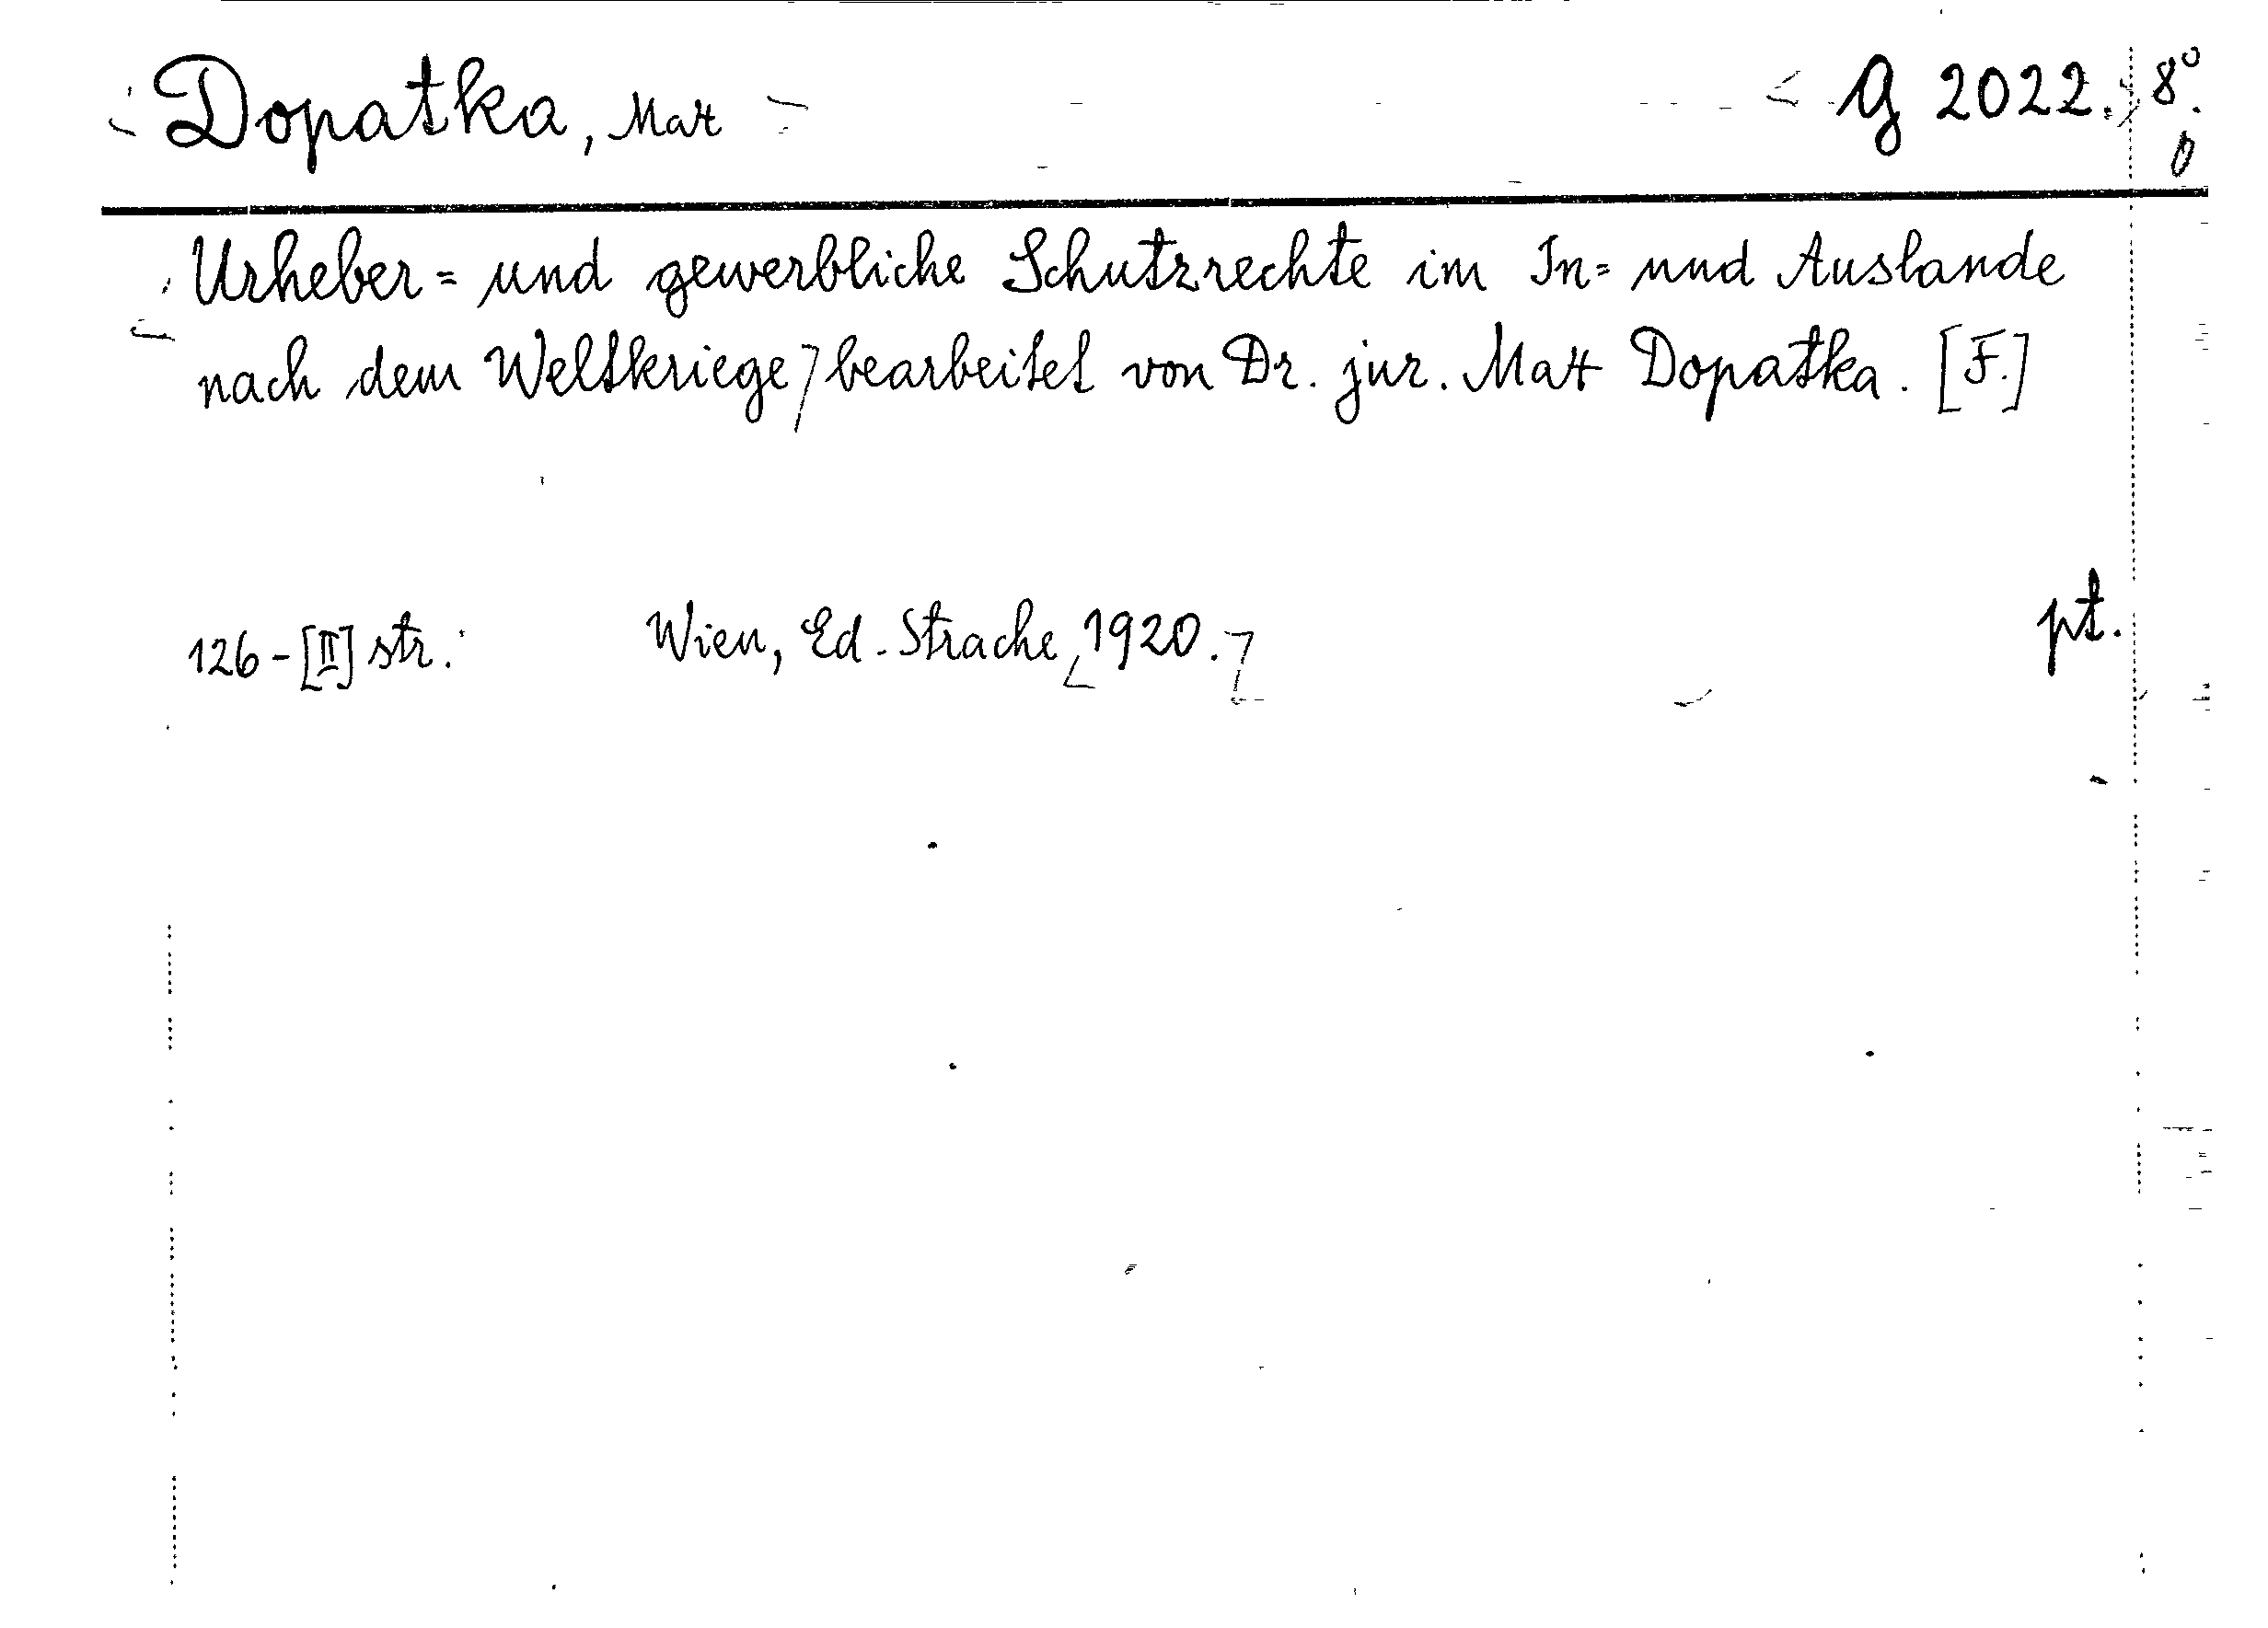 Dopatka, Max G 2022. 8°.
Urheber= und gewerbliche Schutzrechte im In= und Auslande
nach dem Weltkriege / bearbeitet von Dr. jur. Max Dopatka. [F.]
126-[II] str. Wien, Ed. Strache, 1920. pt.